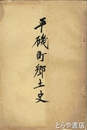 平磯町郷土史
とむら書房